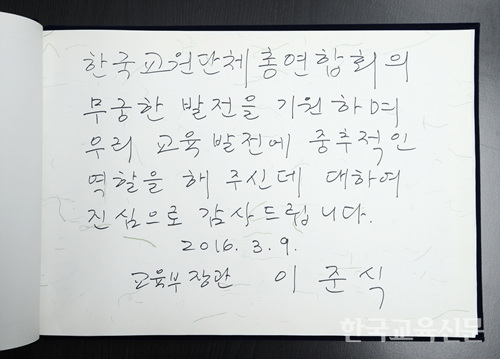 한국교원단체총연합회의
무궁한 발전을 기원하며
우리 교육발전에 중추적인
역할을 해 주신데 대하여
진심으로 감사드립니다.
2016. 3. 9.
교육부장관 이준식
한국교육신문